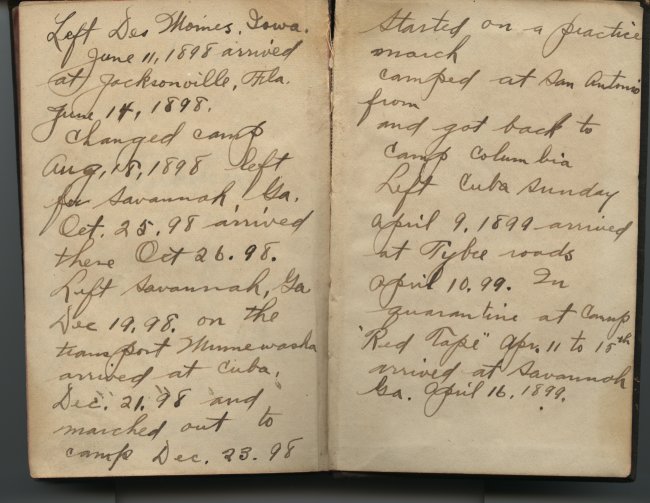 Left Des Moines, Iowa.
June 11, 1898 arrived
at Jacksonville, Fla.
June 14, 1898.
Changed camp
Aug, 18, 1898 left
for Savannah, Ga.
Oct. 25. 98 arrived
there Oct 26. 98.
Left Savannah, Ga
Dec 19, 98. on the
transport Minnewaska
arrived at Cuba,
Dec. 21. 98 and
marched out to
camp Dec. 23. 98
Started on a practice
march
camped at San Antonio
from
and got back to
Camp Columbia
Left Cuba Sunday
April 9, 1899 arrived
at Tybee roads
April 10. 99. In
quarantine at Camp
"Red Tape" Apr. 11 to 15th
arrived at Savannah
Ga. April 16. 1899.